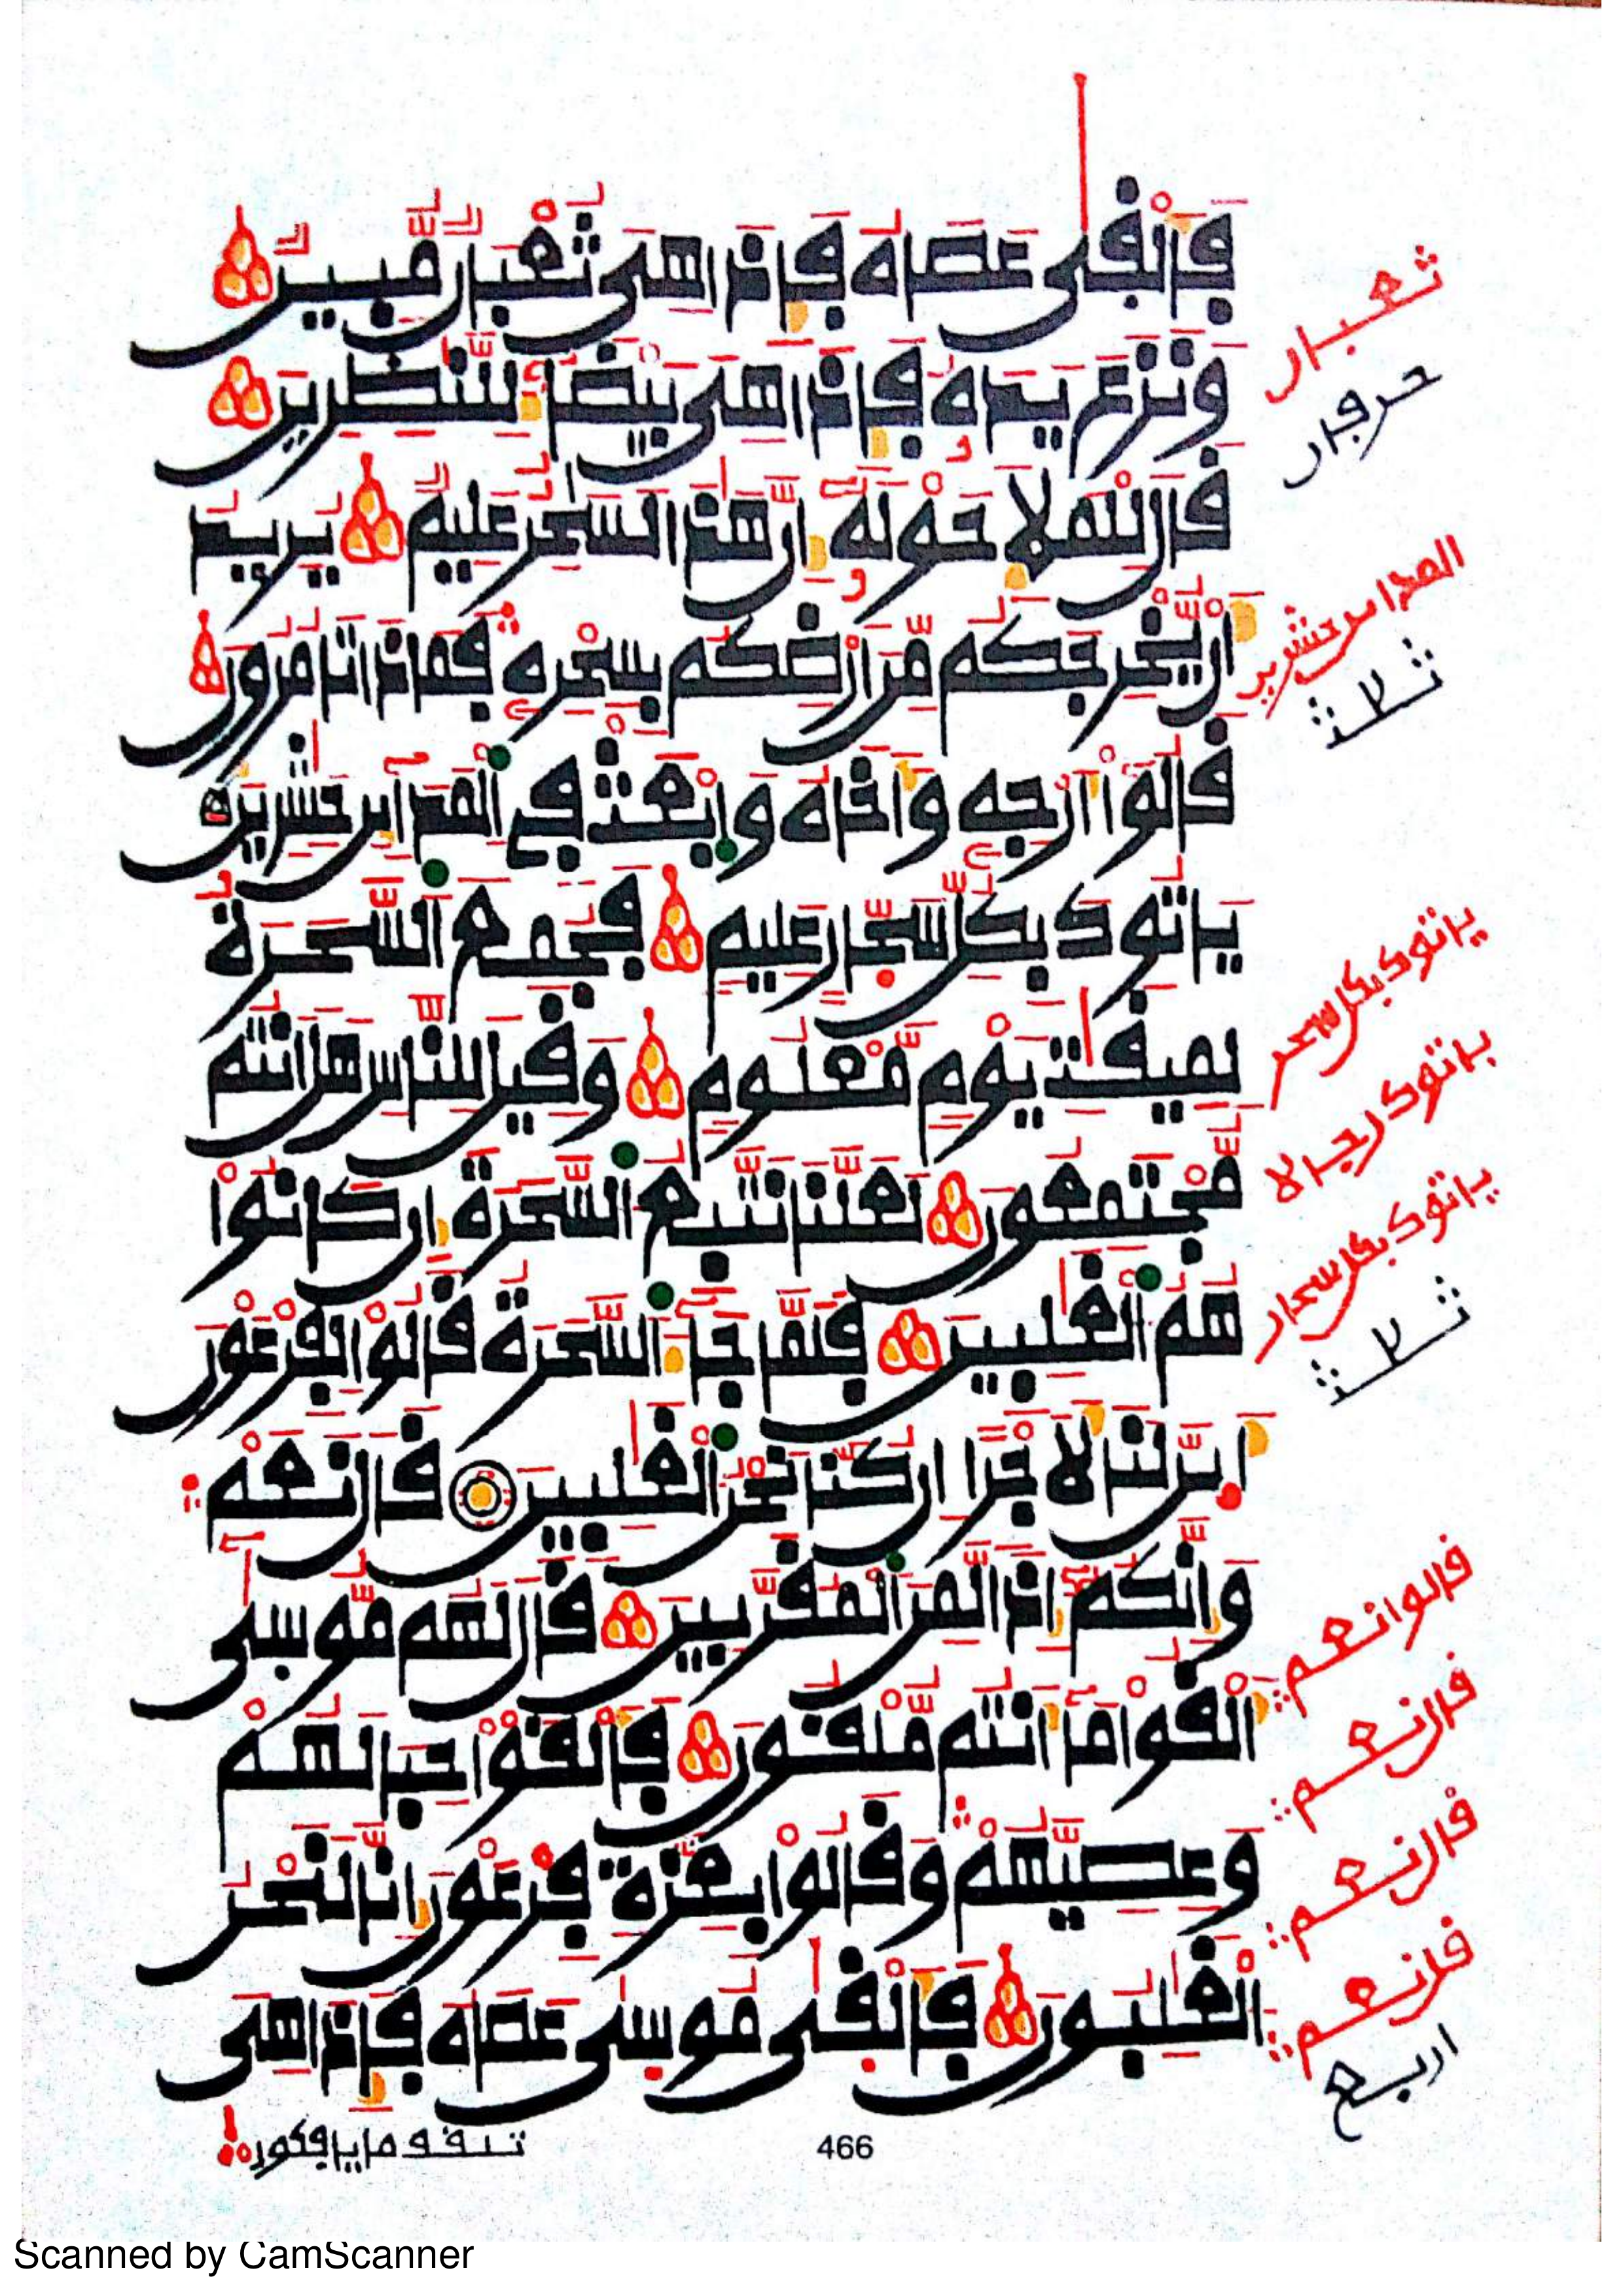 فَأَلْقَىٰ عَصَاهُ فَإِذَا هِيَ ثُعْبَانٌ مُّبِينٌ
وَنَزَعَ يَدَهُ فَإِذَا هِيَ بَيْضَاءُ لِلنَّٰظِرِينَ
قَالَ لِلْمَلَإِ حَوْلَهُ إِنَّ هَٰذَا لَسَٰحِرٌ عَلِيمٌ يُرِيدُ
أَنْ يُّخْرِجَكُم مِّنْ أَرْضِكُم بِسِحْرِهِ فَمَاذَا تَأْمُرُونَ
قَالُوا أَرْجِهِ وَأَخَاهُ وَابْعَثْ فِي الْمَدَائِنِ حَٰشِرِينَ
يَأْتُوكَ بِكُلِّ سَحَّارٍ عَلِيمٍ فَجُمِعَ السَّحَرَةُ
لِمِيقَٰتِ يَوْمٍ مَّعْلُومٍ وَقِيلَ لِلنَّاسِ هَلْ أَنتُم
مُّجْتَمِعُونَ لَعَلَّنَا نَتَّبِعُ السَّحَرَةَ إِن كَانُوا
هُمُ الْغَٰلِبِينَ فَلَمَّا جَاءَ السَّحَرَةُ قَالُوا لِفِرْعَوْنَ
أَئِنَّ لَنَا لَأَجْرًا إِن كُنَّا نَحْنُ الْغَٰلِبِينَ قَالَ نَعَمْ
وَإِنَّكُمْ إِذًا لَّمِنَ الْمُقَرَّبِينَ قَالَ لَهُم مُّوسَىٰ
أَلْقُوا مَا أَنتُم مُّلْقُونَ فَأَلْقَوْا حِبَالَهُمْ
وَعِصِيَّهُمْ وَقَالُوا بِعِزَّةِ فِرْعَوْنَ إِنَّا لَنَحْنُ
الْغَٰلِبُونَ فَأَلْقَىٰ مُوسَىٰ عَصَاهُ فَإِذَا هِيَ
تلقف ما يافكون
466
ثعبان
حرفان
المداين حشرين
ثلاث
ياتوك بكل سحر
ياتوك رجالا
ياتوك بكل سحار
ثلاث
قالوا نعم
قال نعم
قال نعم
قل نعم
اربع
Scanned by CamScanner